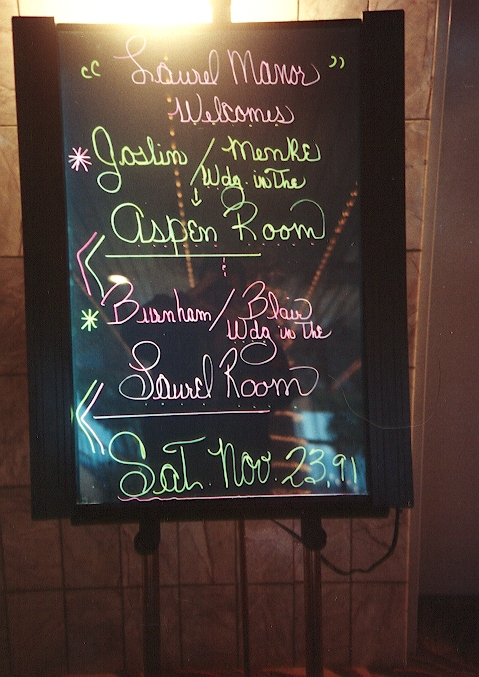 " Laurel Manor "
Welcomes
* Joslin / Menke
Wdg. in The
Aspen Room
* Burnham / Blair
Wdg in The
Laurel Room
Sat. Nov. 23, 91